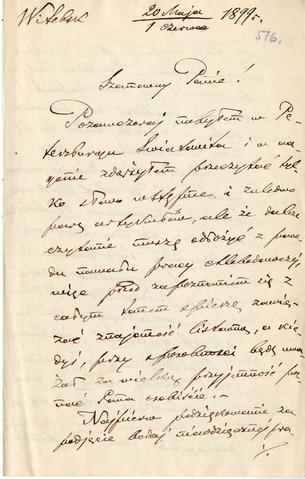 Witebsk 20 Maja / 1 Czerwca 1899 r.
516.
Szanowny Panie!
Pozawczoraj nabyłem w Pe-
terzburgu Światowita i w wa-
gonie zdążyłem przeczytać tyl-
ko słowo wstępne i zaledwo
parę artykułów, ale że dalsze
czytanie muszę odłożyć z powo-
du nawału pracy
więc przed zapoznaniem się z
całym tomem spieszę zawią-
zać znajomość listowną, a kie-
dyś, przy sposobności będę uwa-
żał za wielką przyjemność poz-
nać Pana osobiście.—
Najpierw podziękowanie za
podjęcie bodaj niewdzięcznej pra-